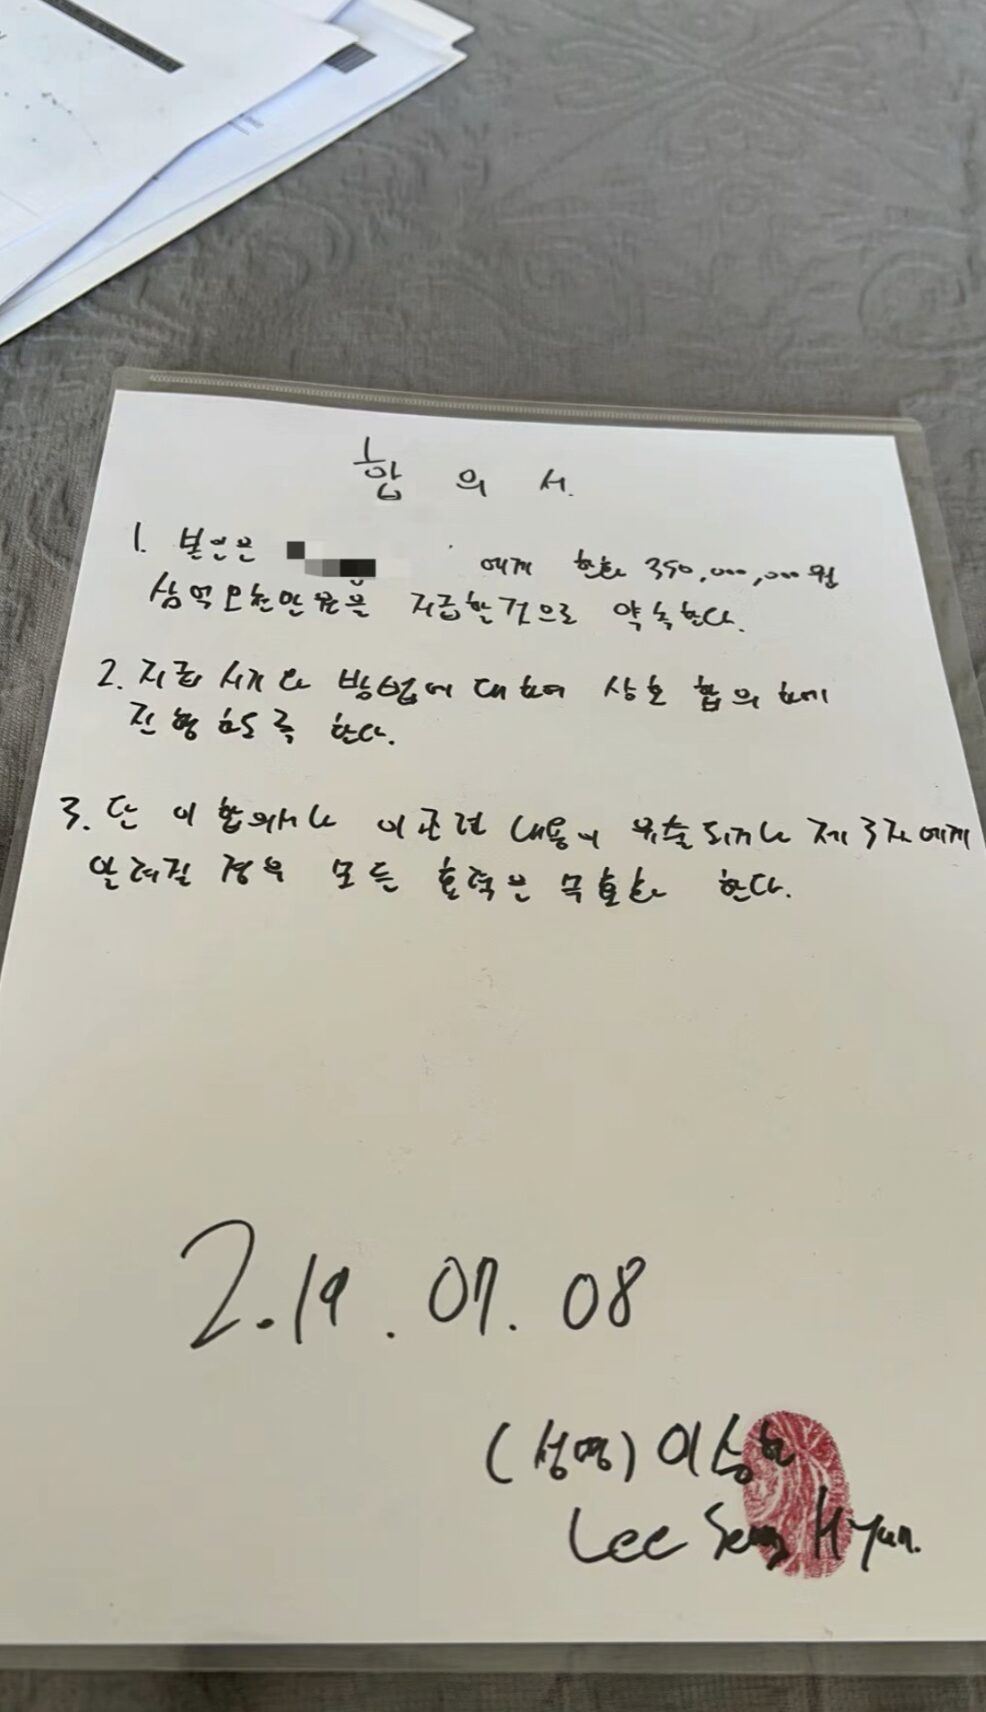 합 의 서.
1. 본인은 에게 한화 350,000,000원
삼억오천만원을 지급할것으로 약속한다.
2. 지급 시기와 방법에 대하여 상호 합의하에
진행하도록 한다.
3. 단 이 합의서나 이 관련 내용이 유출되거나 제3자에게
알려질 경우 모든 효력은 무효화 한다.
2.19. 07. 08
(성명) 이승현
Lee Seung Hyun.